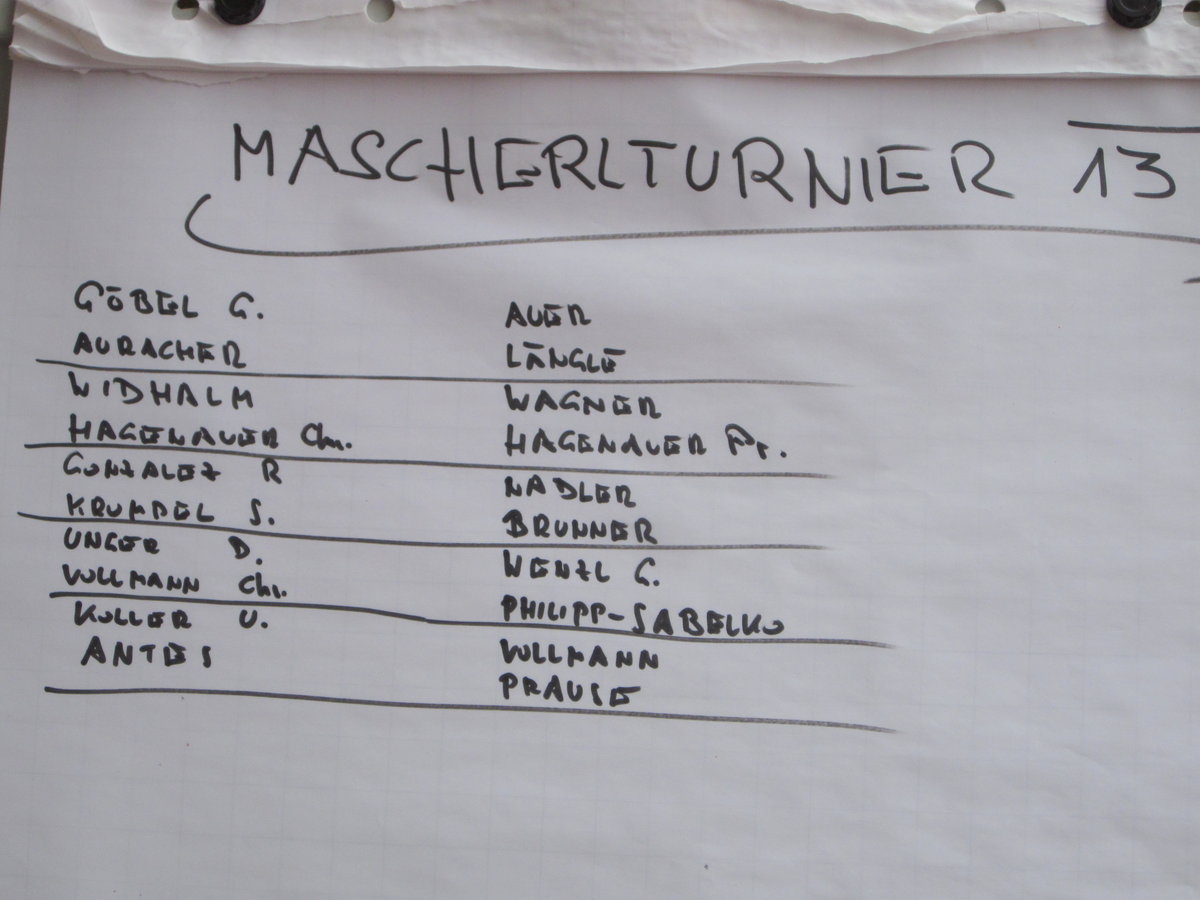 MASCHERLTURNIER 13
GÖBEL G. AUER
AURACHER LÄNGLE
WIDHALM WAGNER
HAGENAUER Chr. HAGENAUER Pr.
GONZALEZ R NADLER
KRUMPEL S. BRUNNER
UNGER D. WENZL G.
VOLLMANN Chr. PHILIPP-SABELKO
KOLLER U. VOLLMANN
ANTES PRAUSE